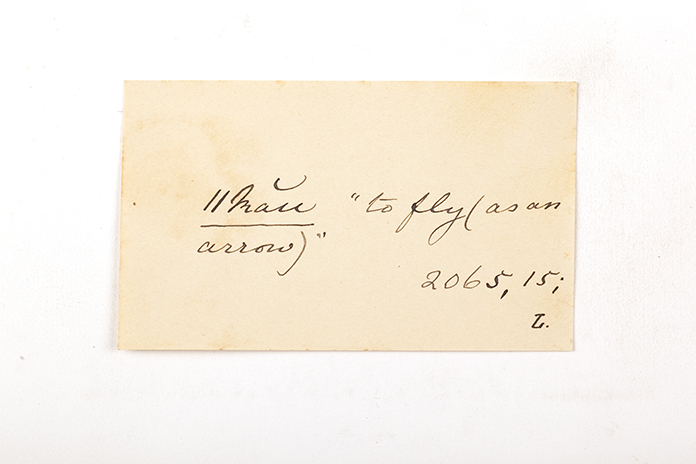 ǁkău "to fly (as an
arrow)"
2065, 15;
L.